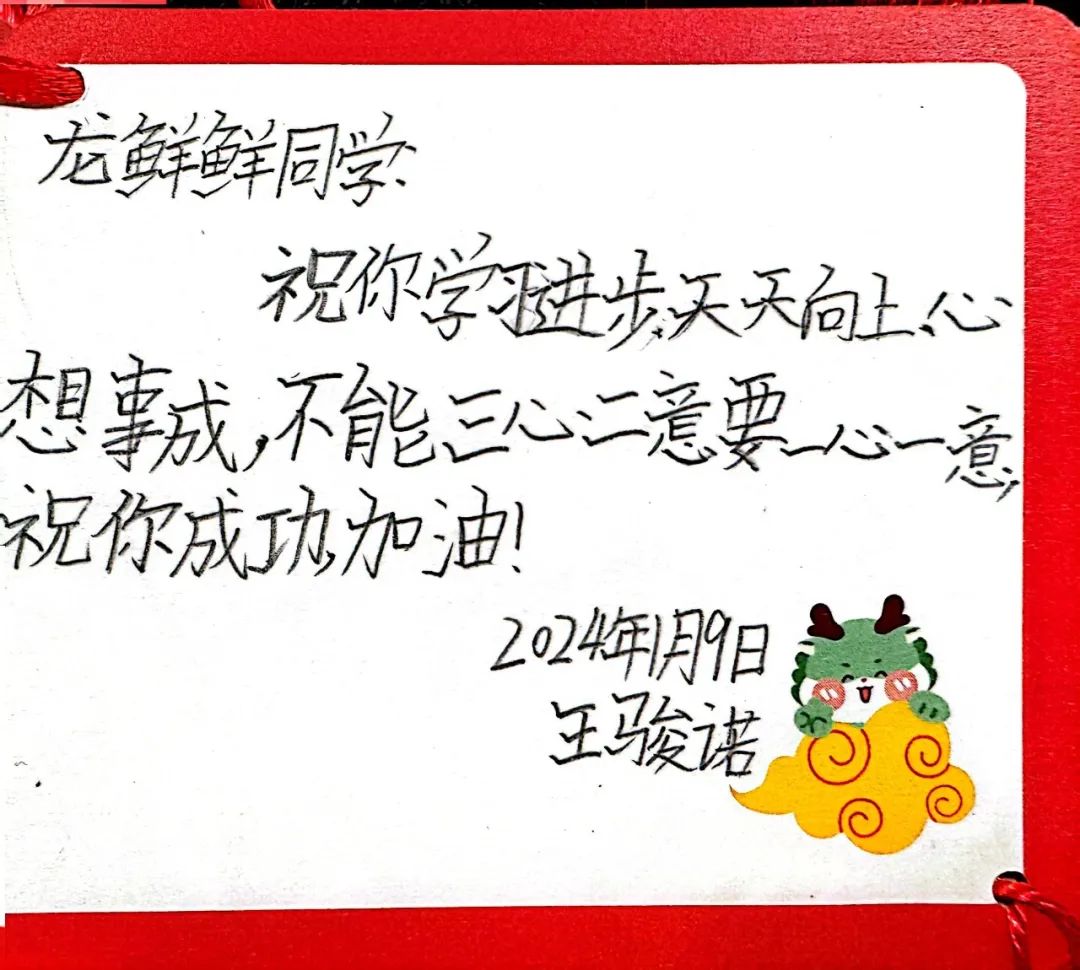 龙鲜鲜同学:
祝你学习进步,天天向上、心
想事成,不能三心二意要一心一意,
祝你成功,加油!
2024年1月9日
王骏诺